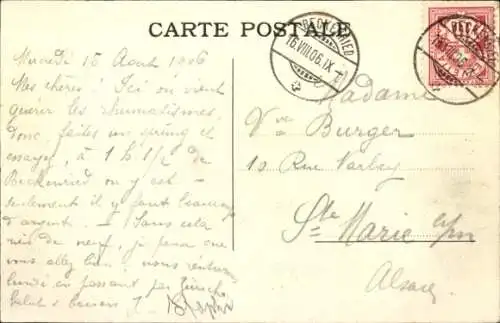 CARTE POSTALE
BECKENRIED
16.VIII.06.IX
Mercredi 15 Août 1906
Mes chères! Ici on vient
guérir les rhumatismes.
donc, faites un sprung et
essayez, à 1 h. 1/2 de
Beckenried on y est –
seulement il y faut beaucoup
d'argent. – Sans cela
rien de neuf, je pense que
vous allez bien. nous rentrerons
lundi en passant par Zürich
Salut & baisers
Madame
Vve Burger
Rue
Ste Marie a/m
Alsace